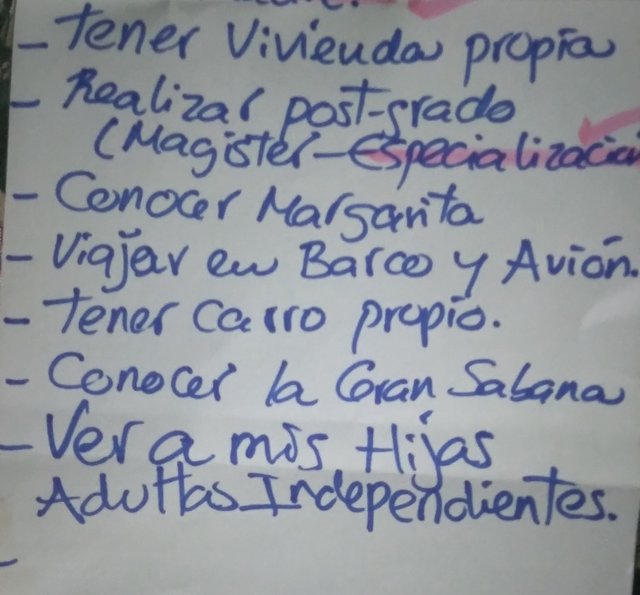 - Tener Vivienda propia
- Realizar post-grado
(Magister-Especialización
- Conocer Margarita
- Viajar en Barco y Avión.
- Tener Carro propio.
- Conocer la Gran Sabana
- Ver a mis Hijas
Adultas Independientes.
-